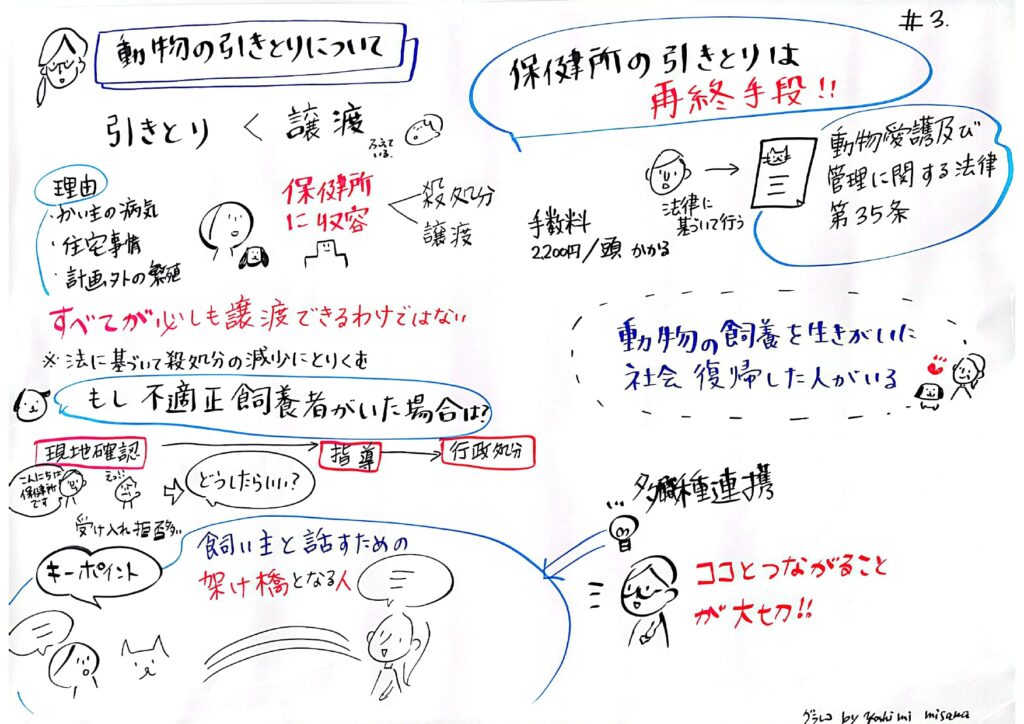 #3.
動物の引きとりについて
引きとり < 譲渡
ふえて
いる.
理由
・かい主の病気
・住宅事情
・計画外の繁殖
保健所
に収容
殺処分
譲渡
すべてが必しも譲渡できるわけではない
※法に基づいて殺処分の減少にとりくむ
もし不適正飼養者がいた場合は?
現地確認
指導
行政処分
こんにちは
保健所
です
えっ!!
どうしたらいい?
受け入れ拒否多い
キーポイント
飼い主と話すための
架け橋となる人
保健所の引きとりは
再終手段!!
法律に
基づいて行う
動物愛護及び
管理に関する法律
第35条
手数料
2,200円/頭 かかる
動物の飼養を生きがいに
社会復帰した人がいる
多職種連携
ココとつながること
が大切!!
グラレコ by Yoshimi misawa